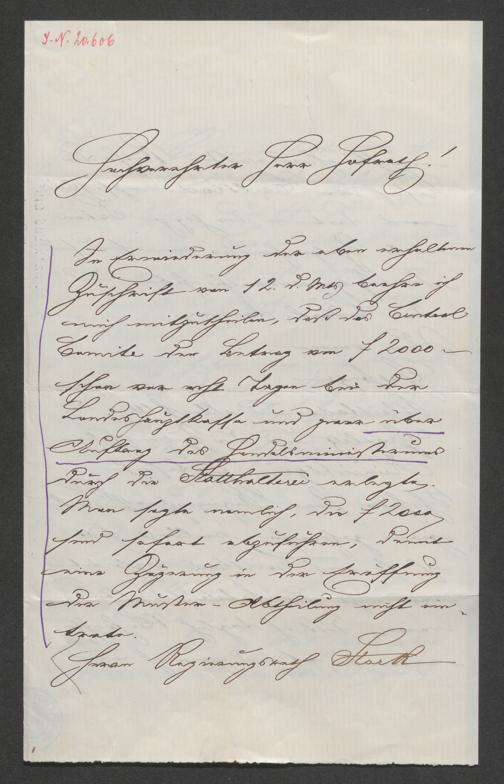 J.-N. 20.606
Hochverehrter Herr Hofrath!
In Erwiederung der eben erhaltenen
Zuschrift vom 12. d. Mts beehre ich
mich mitzutheilen, daß das Central
Comite den Betrag von f 2000 –
schon vor acht Tagen bei der
Landeshauptkasse und zwar über
Auftrag des Handelsministeriums
durch die Statthalterei erlegte.
Man sagte nemlich, die f 2000
sind sofort abzuführen, damit
eine Zögerung in der Eröffnung
der Muster-Abtheilung nicht ein-
trete.
Herrn Regierungsrath Storck